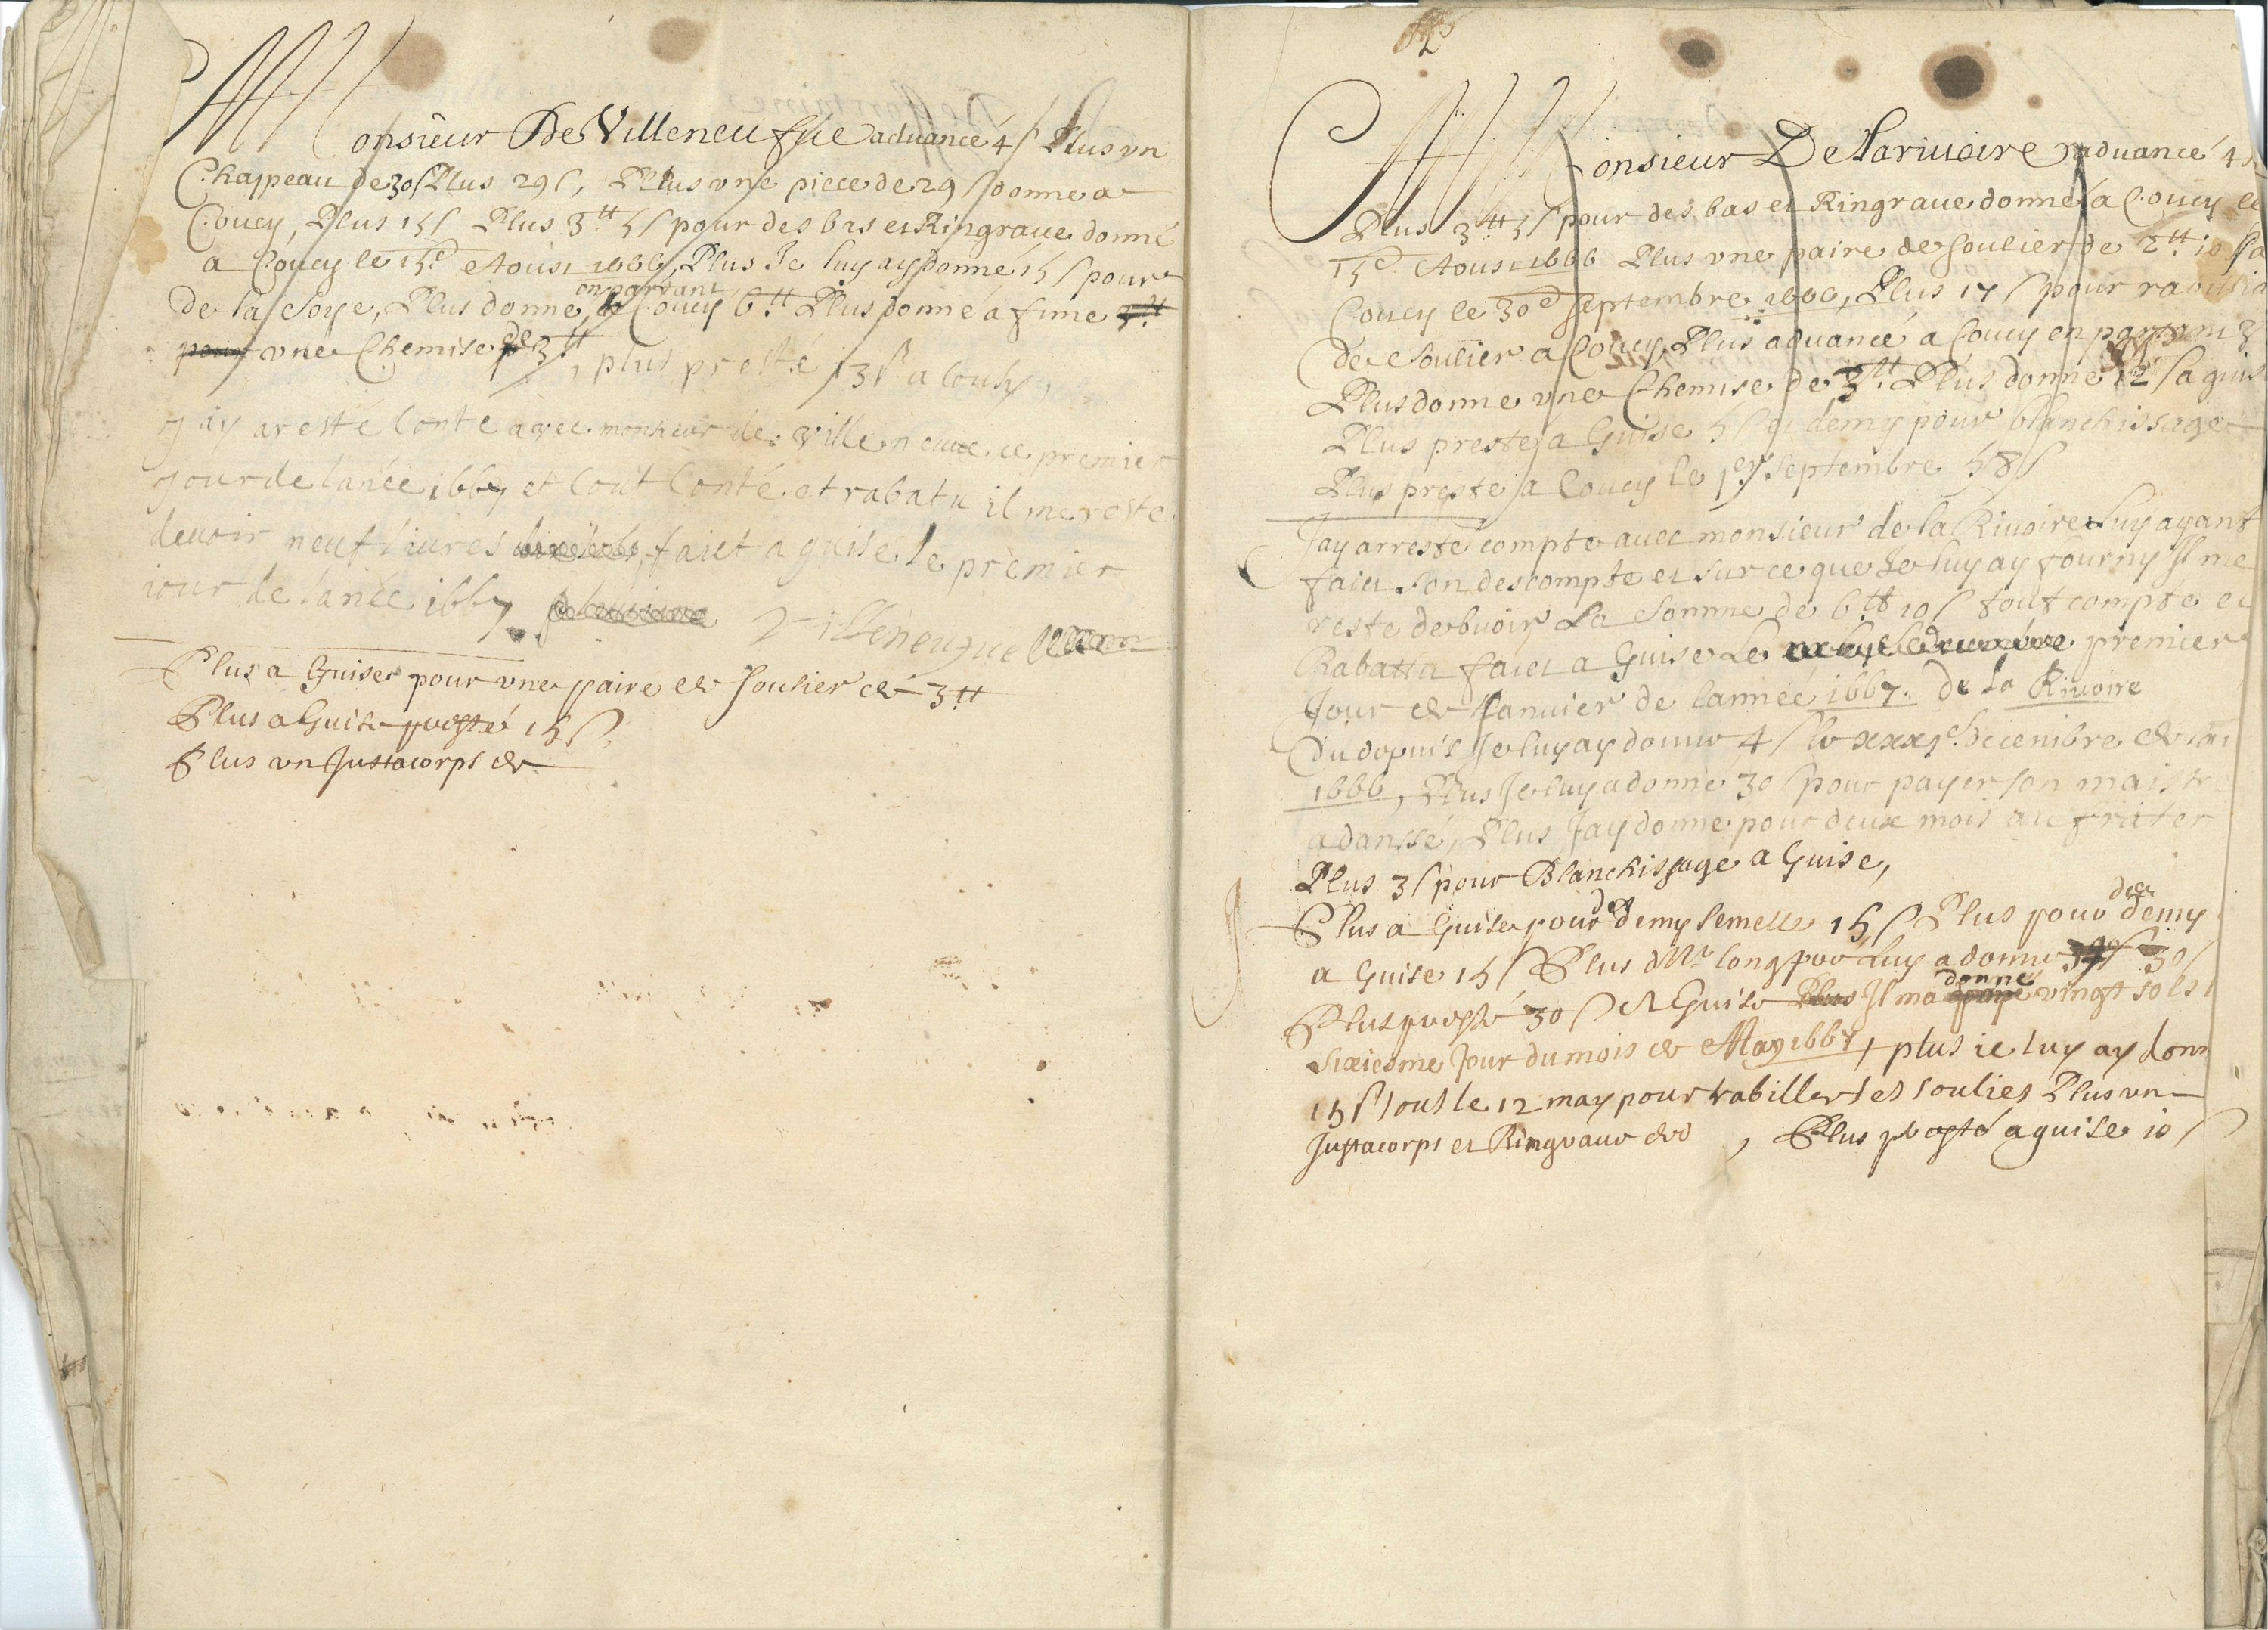 Monsieur De Villeneufue aduancé 4 s Plus vn
Chappeau de 30 s Plus 29 s, Plus vne piece de 29 s donne a
Coucy, Plus 15 s Plus 3 tt 5 s pour des bas et Ringraue donné
a Coucy le 15e Aoust 1666, Plus Je luy ay donné 15 s pour
de la Soye, Plus donne en partant Coucy 6 tt Plus donné a fime
pour vne Chemise de 3 tt, plus presté 3 s a
J ay aresté Conte avec monsieur de villeneuue ce premier
jour de lanée 1667 et tout Conté et rabatu il me reste
deuoir neuf liures faict a guise le premier
iour de lanée 1667 Villeneuue
Plus a Guise pour vne paire de soulier de 3 tt
Plus a Guise presté 15 s
Plus vn Justacorps de
Monsieur De Lariuoire aduancé 4 s
Plus 3 tt 5 s pour des bas et Ringraue donné a Coucy le
15e Aoust 1666 Plus vne paire de soulier de 2 tt 10 s a
Coucy le 30e septembre 1666, Plus 17 s pour
de Soulier a Coucy, Plus aduancé a Coucy en partant 3
Plus donne vne Chemise de 3 tt Plus donne 12 s a guis
Plus preste a Guise 5 s et demy pour blanchissage
Plus preste a Coucy le 1er septembre 58 s
Jay arresté compte auec monsieur de la Riuoire Luy ayant
faict son descompte et sur ce que Je luy ay fourny Il me
reste debuoir La Somme de 6 tt 10 s tout compté et
Rabattu faict a Guise Le premier
Jour de Januier de lannée 1667. de la Riuoire
Du depuis Je luy ay donné 4 s le xxxje decembre de lan
1666, Plus Je luy a donné 30 s pour payer son maistr
a danssé, Plus Jay donne pour deux mois au frater
Plus 3 s pour Blanchissage a Guise,
Plus a Guise pour des demy semelle 15 s Plus pour des demy
a Guise 15 s Plus Mr longpré luy a donné 30 s
Plus presté 30 s A Guise Il ma donné vingt sols
sixiesme Jour du mois de May 1667, plus ie luy ay donn
15 s sous le 12 may pour rabiller ses soulies Plus vn
Justacorps et Ringraue de, Plus presté a guise 10 s